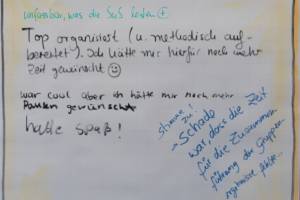 unfassbar, was die SuS leisten +
Top organisiert (u. methodisch auf-
bereitet). Ich hätte mir hierfür noch mehr
Zeit gewünscht ☺
war cool aber ich hätte mir noch mehr
Pausen gewünscht
hatte Spaß!
stimme
zu!
Schade
war, dass die Zeit
für die Zusammen-
führung der Gruppen-
ergebnisse fehlte...